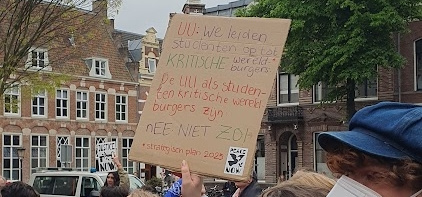 UU: We leiden
studenten op tot
KRITISCHE wereld
burgers.
De UU als studen-
ten kritische wereld
burgers zijn
NEE NIET ZO!
* strategisch plan 2025
PEACE
NOW